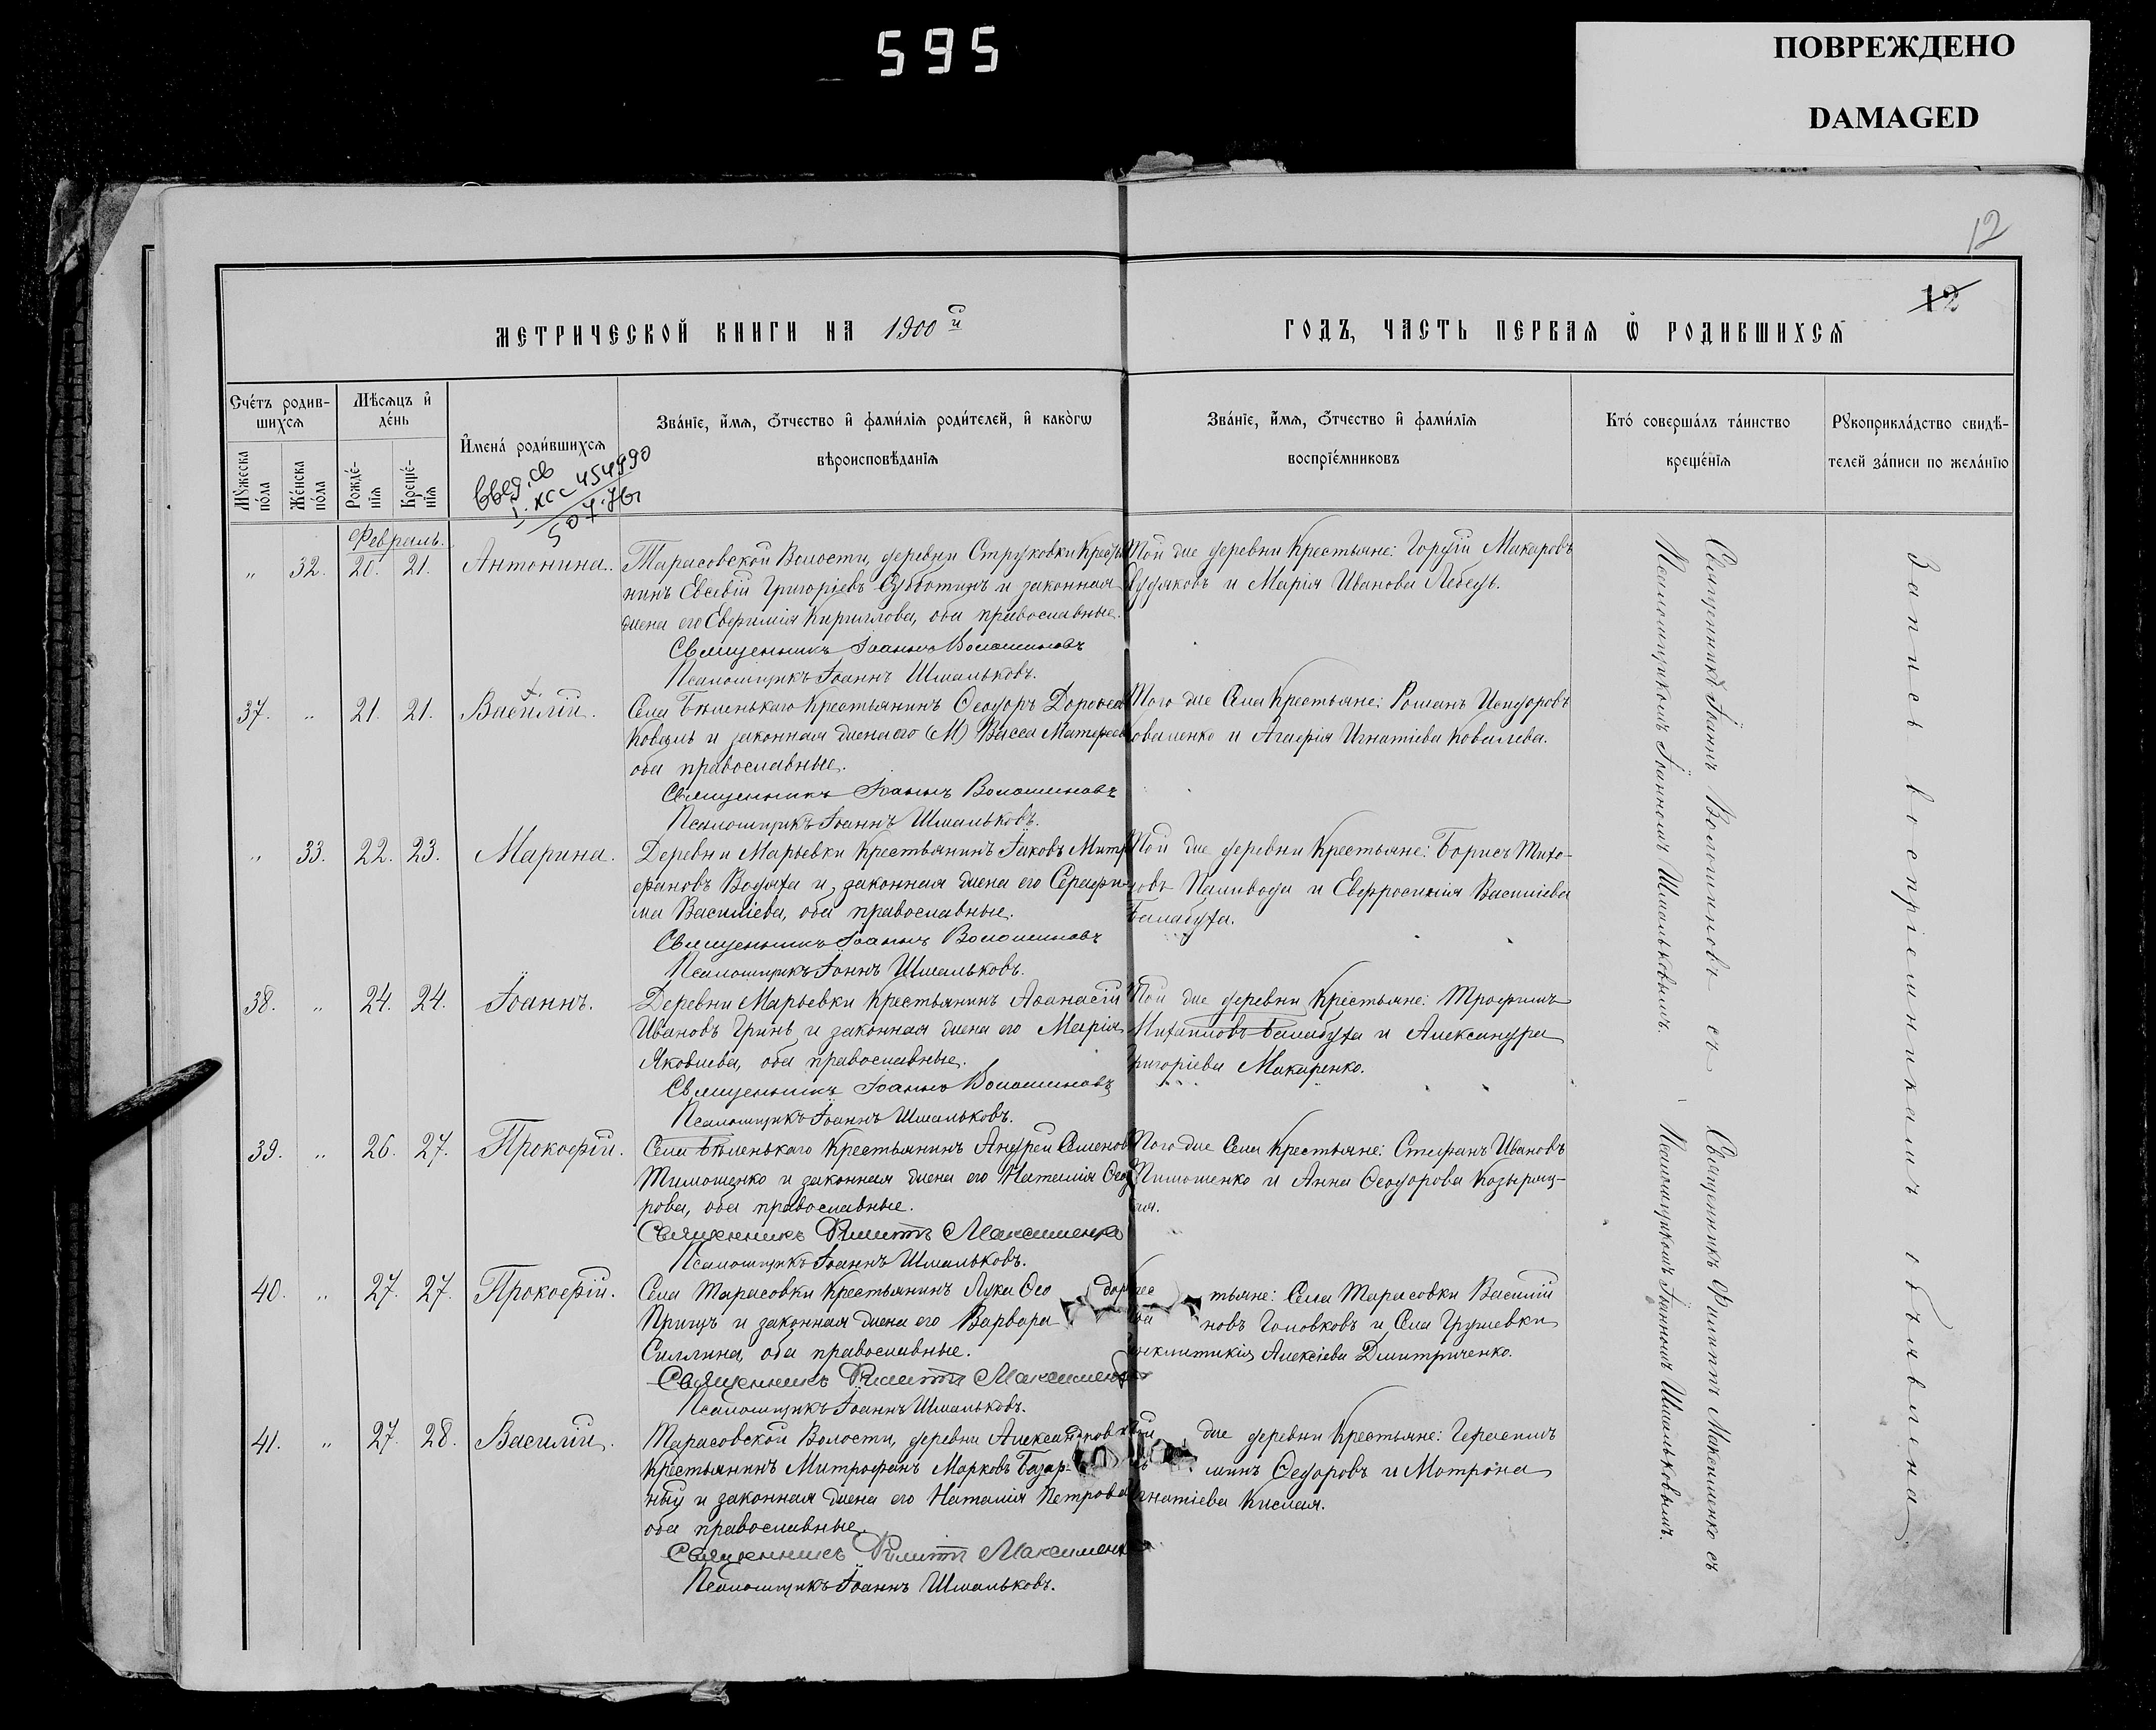 595
ПОВРЕЖДЕНО
DAMAGED
12
12
МЕТРИЧЕСКОЙ КНИГИ НА 1900й
ГОДЪ, ЧАСТЬ ПЕРВАЯ Ѡ РОДИВШИХСЯ
Счетъ родив-
шихся
Мужеска
пола
Женска
пола
Мѣсяцъ и
день
Рожде-
нія
Креще-
нія
Имена родившихся
Званіе, имя, отчество и фамилія родителей, и какогѡ
вѣроисповѣданія
Званіе, имя, отчество и фамилія
воспріемниковъ
Кто совершалъ таинство
крещенія
Рукоприкладство свидѣ-
телей записи по желанію
Февраль.
„ 32. 20. 21. Антонина.
Тарасовской Волости, деревни Струковки Кресть
нинъ Евсевій Григоріевъ Субботинъ и законная
жена его Евфимія Кириллова, оба православные.
Священникъ Іоаннъ Волошиновъ
Псаломщикъ Іоаннъ Шмальковъ.
Той же деревни Крестьяне: Гордій Макаровъ
Судаковъ и Марія Иванова Лебедь.
37. „ 21. 21. Василій.
Села Бѣленькаго Крестьянинъ Ѳеодоръ Дороѳеев
Коваль и законная жена его (М) Васса
оба православные.
Священникъ Іоаннъ Волошиновъ
Псаломщикъ Іоаннъ Шмальковъ.
Того же Села Крестьяне: Романъ Исидоровъ
Коваленко и Агафія Игнатіева Ковалева.
„ 33. 22. 23. Марина.
Деревни Марьевки Крестьянинъ Іаковъ Митр
офановъ Водяха и законная жена его Серафи-
ма Василіева, оба православные.
Священникъ Іоаннъ Волошиновъ
Псаломщикъ Іоннъ Шмальковъ.
Той же деревни Крестьяне: Борисъ Тихо-
новъ Паливода и Евфросинія Василіева
Балабуха.
38. „ 24. 24. Іоаннъ.
Деревни Марьевки Крестьянинъ Аѳанасій
Ивановъ Гринь и законная жена его Марія
Яковлева, оба православные.
Священникъ Іоаннъ Волошиновъ
Псаломщикъ Іоаннъ Шмальковъ.
Той же деревни Крестьяне: Трофимъ
Михаиловъ Балабуха и Александра
Григоріева Макаренко.
39. „ 26. 27. Прокофій.
Села Бѣленькаго Крестьянинъ Андрей Семенов
Тимошенко и законная жена его Наталія Ѳеод
рова, оба православные.
Священникъ Филиппъ Максименко
Псаломщикъ Іоаннъ Шмальковъ.
Того же Села Крестьяне: Стефанъ Ивановъ
Тимошенко и Анна Ѳеодорова Козыриц-
кая.
40. „ 27. 27. Прокофій.
Села Тарасовки Крестьянинъ Лука Ѳео дор
Прищъ и законная жена его Варвара
Силина, оба православные.
Священникъ Филиппъ Максименко
Псаломщикъ Іоаннъ Шмальковъ.
тьяне: Села Тарасовки Василій
новъ Головковъ и Села Грушевки
нклитикія Алексіева Дмитриченко.
41. „ 27. 28. Василій.
Тарасовской Волости, деревни Александровки
Крестьянинъ Митрофанъ Марковъ Базар-
ный и законная жена его Наталія Петрова
оба православные.
Священникъ Филиппъ Максименко
Псаломщикъ Іоаннъ Шмальковъ.
Той же деревни Крестьяне: Герасимъ
минъ Ѳедоровъ и Матрона
Игнатіева Кислая.
Священникъ Іоаннъ Волошиновъ съ
Псаломщикомъ Іоанномъ Шмальковымъ.
Священникъ Филиппъ Максименко съ
Псаломщикомъ Іоанномъ Шмальковымъ.
Запись воспріемникамъ объявлена.